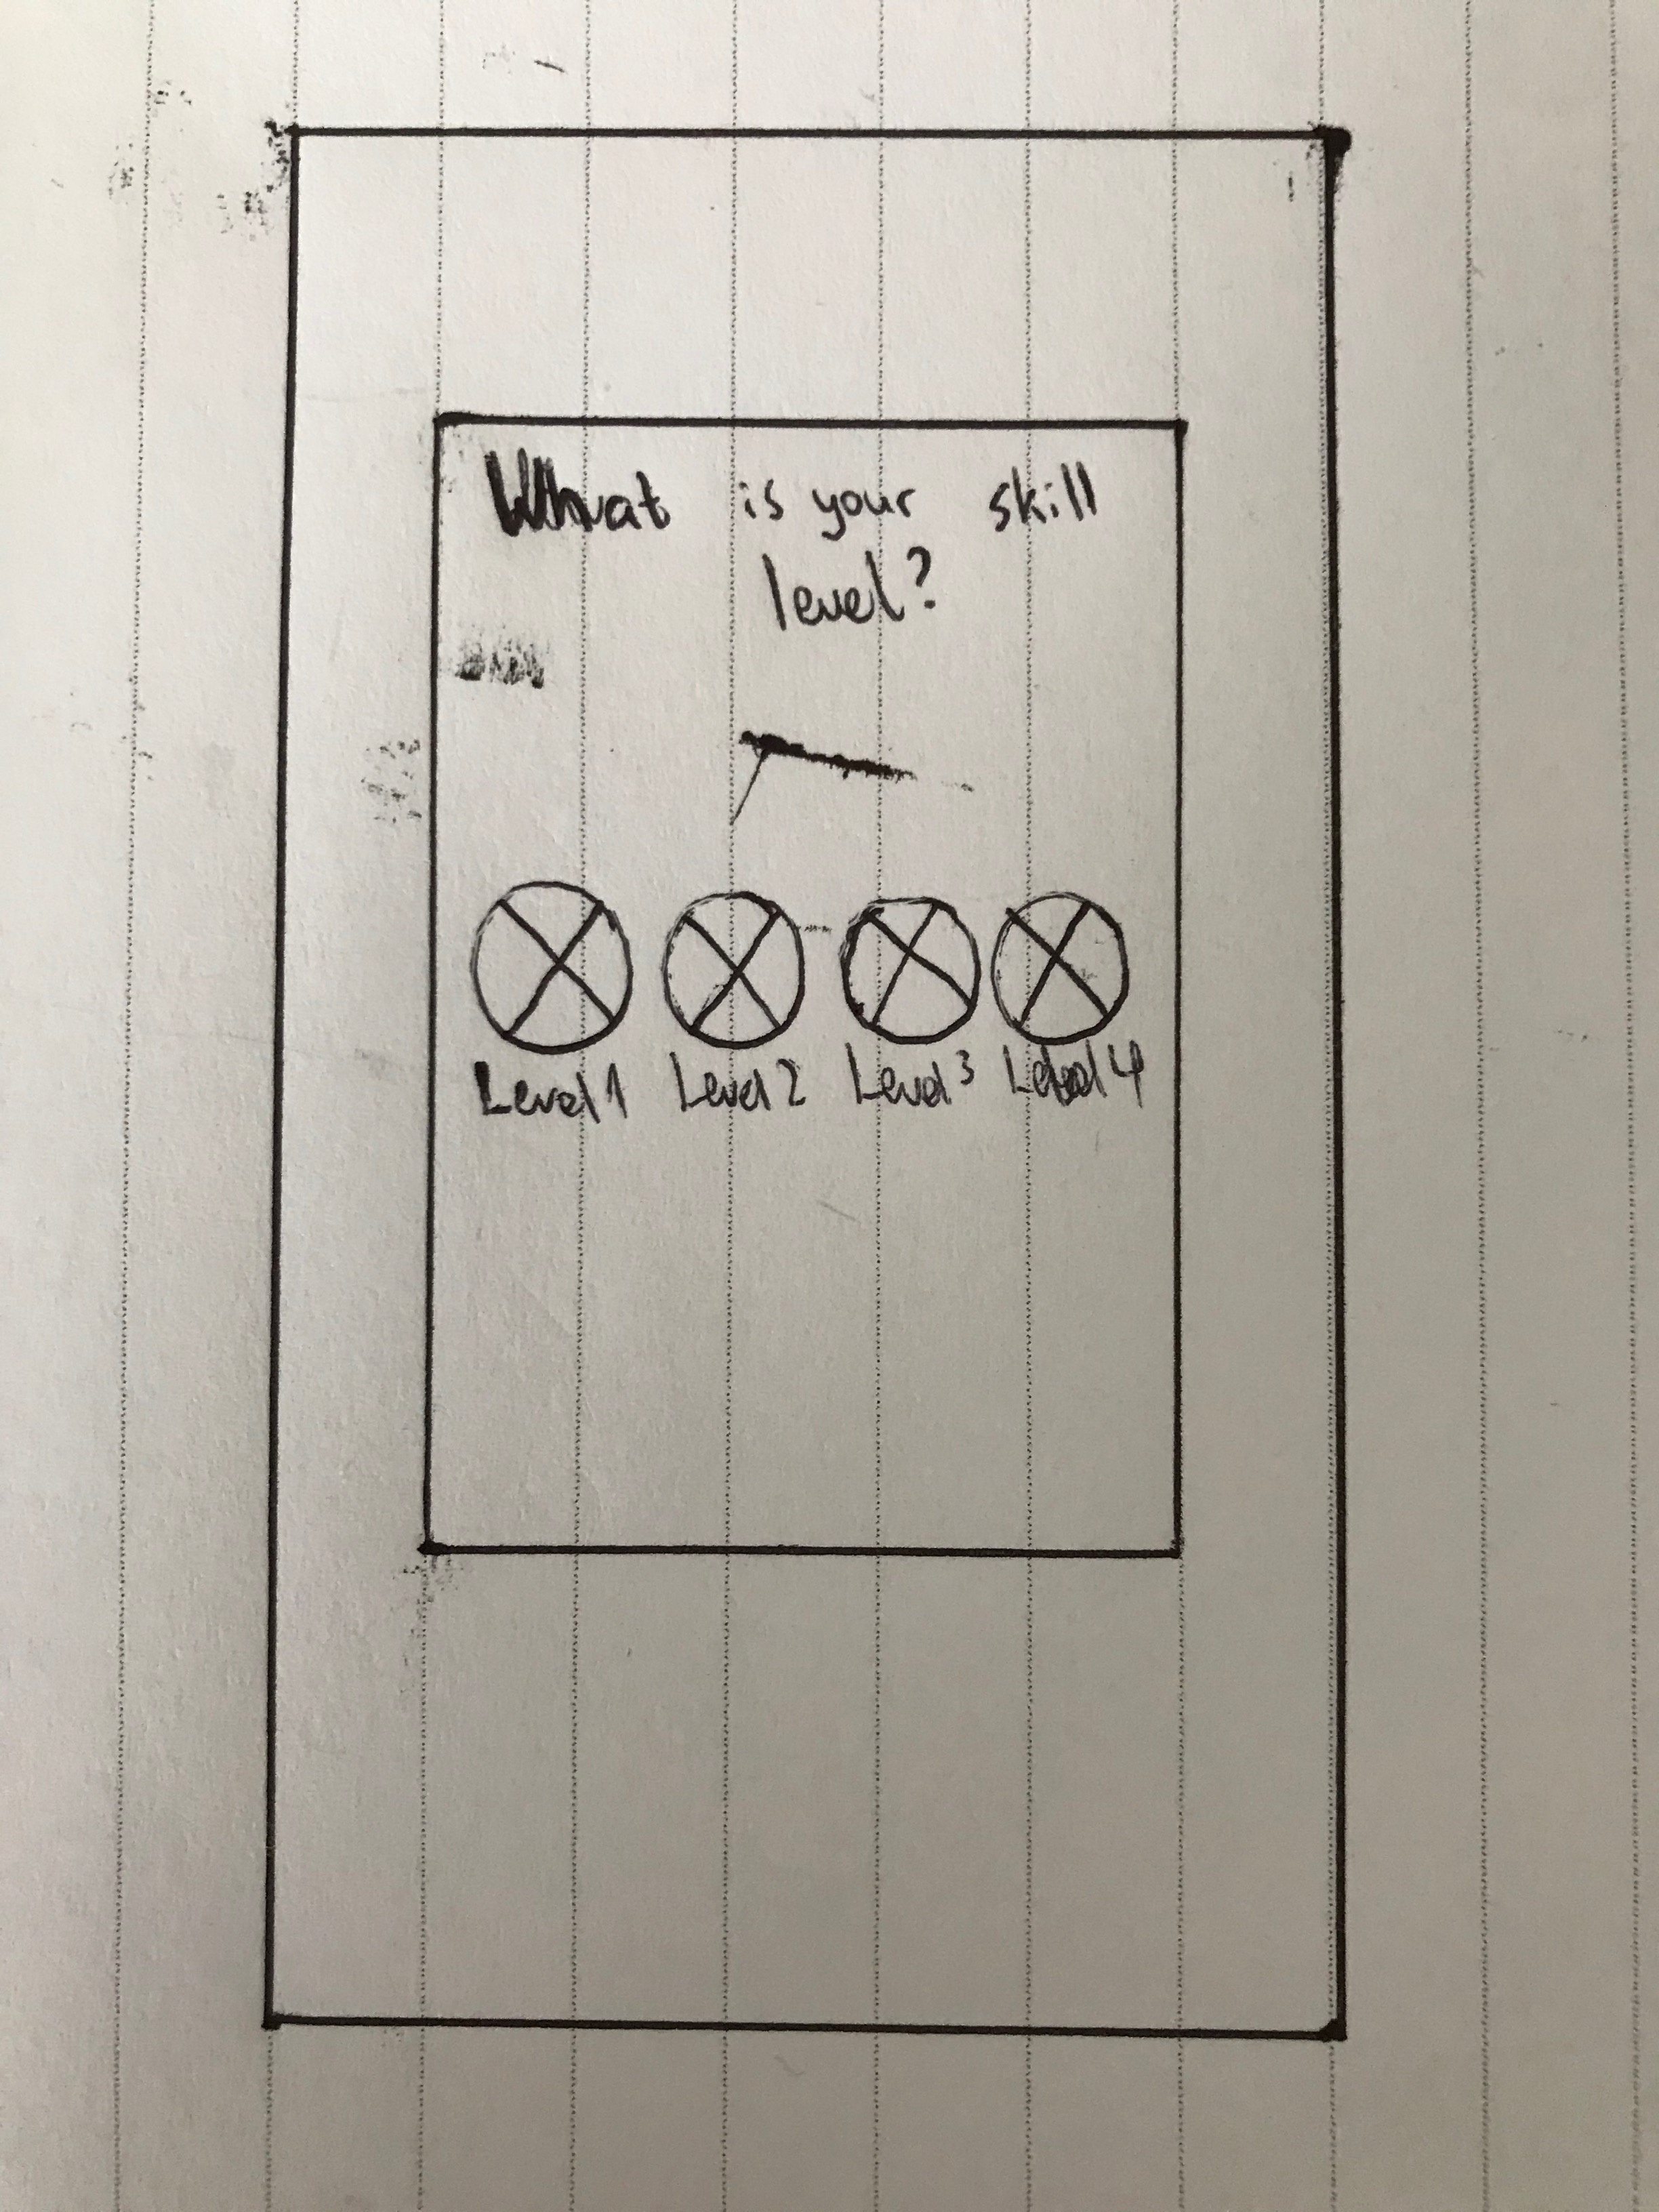 What is your skill
level?
Level 1 Level 2 Level 3 Level 4